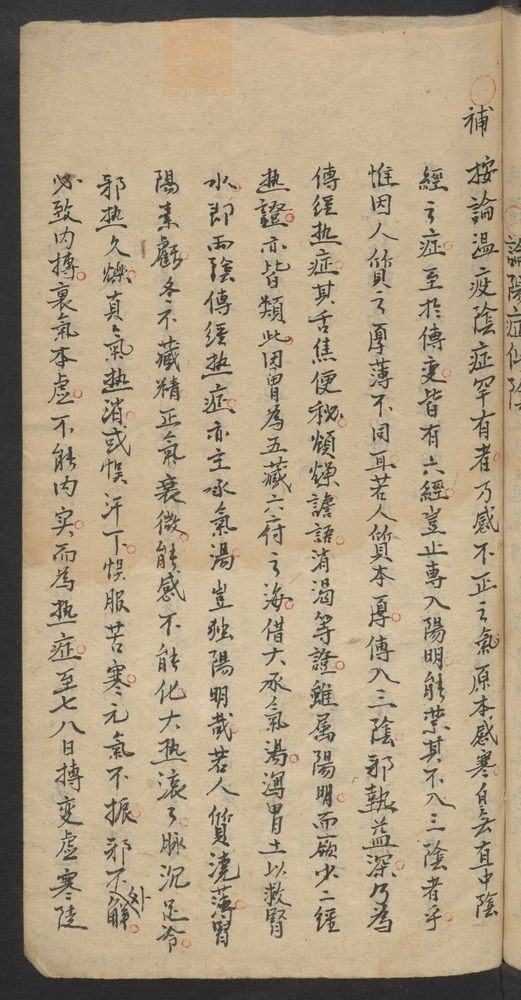 論陽症似陰
補 按論溫疫陰症罕有者乃感不正之氣原本感寒自無直中陰
經之症至於傳變皆有六經豈止專入陽明能禁其不入三陰者乎
惟因人質之厚薄不同耳若人質本厚傳入三陰邪執益深乃為
傳經热症其舌焦便秘煩燥譫語消渴等證雖属陽明而厥少二經
热證亦皆類此因胃為五藏六府之海借大承气湯瀉胃土以救腎
水即两陰傳經热症亦主承氣湯豈独陽明哉若人質澆薄腎
陽素虧冬不藏精正氣衰微能感不能化大热滚之脉沉足冷
邪热久燥真氣热消或悮汗下悮服苦寒元氣不振邪不外解
必致内摶裏氣本虚不能内实而為热症至七八日摶变虚寒陡